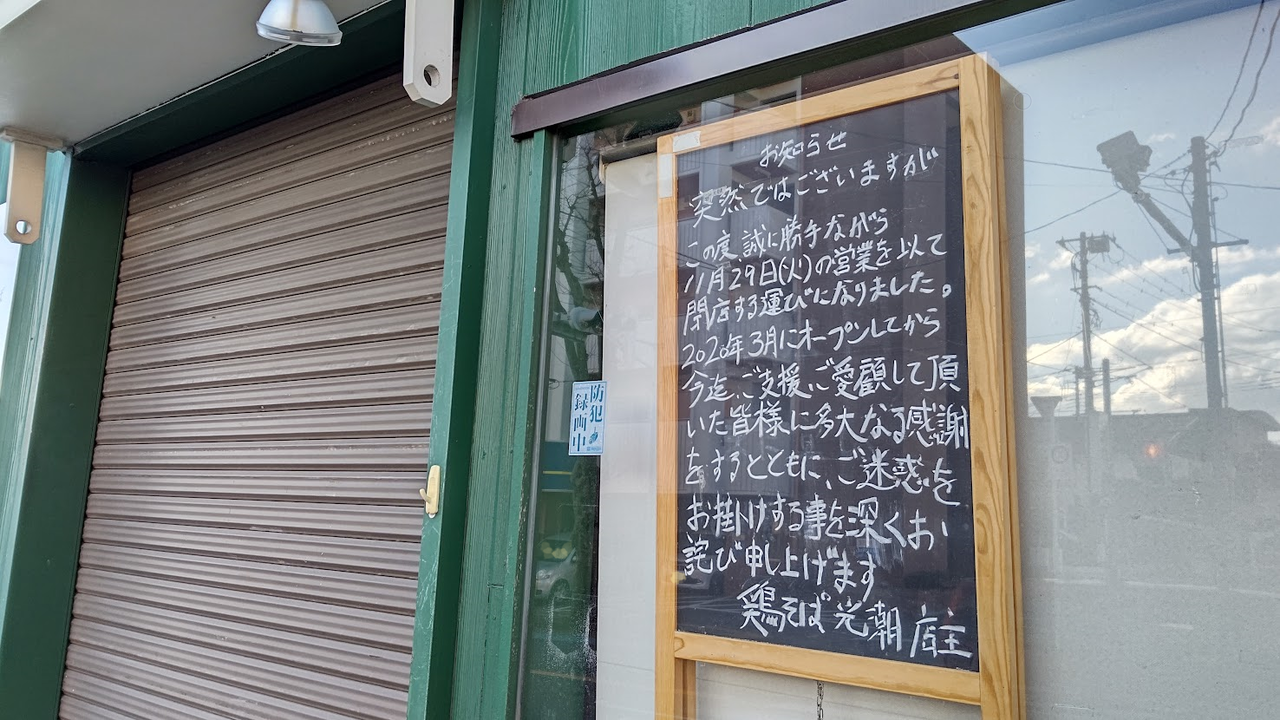 お知らせ
突然ではございますが
この度誠に勝手ながら
11月29日(火)の営業を以て
閉店する運びになりました。
2020年3月にオープンしてから
今迄、ご支援、ご愛顧して頂
いた皆様に多大なる感謝
をするとともに、ご迷惑を
お掛けする事を深くお
詫び申し上げます
鶏そば 光朝 店主
防犯
録画中